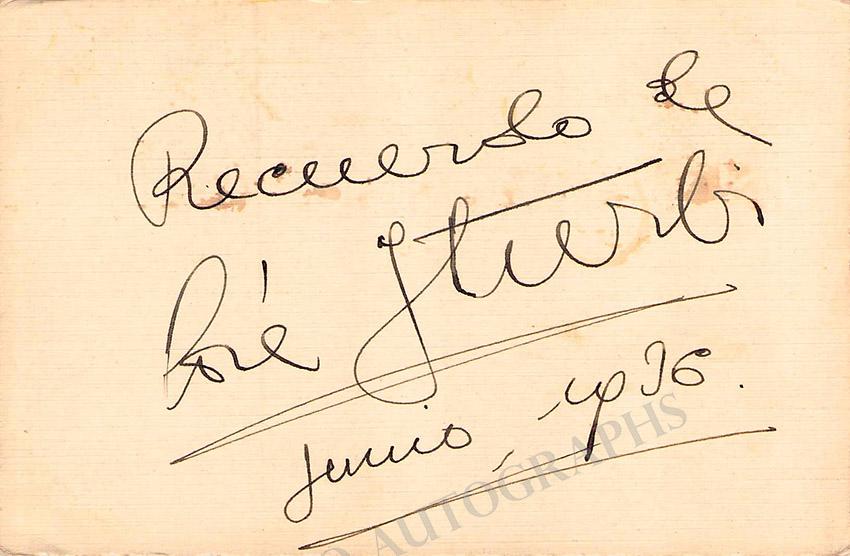 Recuerdo de
José Iturbi
junio, 1936.
O AUTOGRAPHS